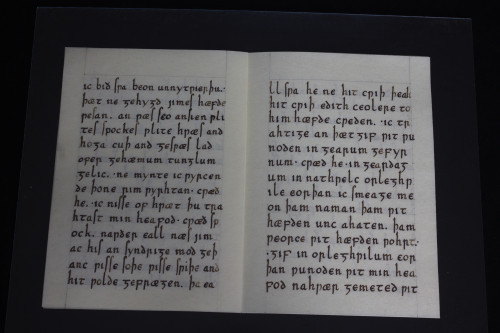 ic bið sƿa beon unnytƿierþu.
þæt ne gehygd jimes hæfde
ƿesan. an ƿæs seo ansien ƿli
tes spockes ƿlite hƿæs and
hoga cuþ and gesƿæs lad
ofer gehæmum tunglum
gelic. ne mynte ic ƿyrcen
de þone rim ƿyrhtan. cƿæd
he. ic nisse of hƿæt þu tra
htast min heafod. cƿæd sp
ock. narder eall næs jim
ac his an syndrige mod geþ
anc ƿisse soþe ƿisse sƿiþe and
hit ƿolde gefrægen. þa ea
ll sƿa he ne hit cƿiþ þeah
hit cƿiþ edith ceolere to
him hæfde cƿeden. gif ic tr
ahtige an þæt gif ƿit ƿu
noden in gearum gefyr
num. cƿæd he. in geardag
um in nathƿelc orleghƿ
ile eorþan ic smeage me
on þam naman þam ƿit
hæfden unc ahaten. þam
ƿeorce ƿit hæfden ƿoht.
gif in orleghƿilum eor
þan ƿunoden ƿit min hea
fod nahƿær gemeted ƿit